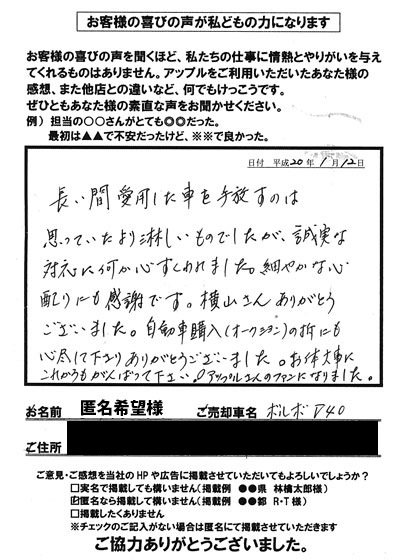 お客様の喜びの声が私どもの力になります
お客様の喜びの声を聞くほど、私たちの仕事に情熱とやりがいを与え
てくれるものはありません。アップルをご利用いただいたあなた様の
感想、また他店との違いなど、何でもけっこうです。
ぜひともあなた様の素直な声をお聞かせください。
例）担当の○○さんがとても◎◎だった。
最初は▲▲で不安だったけど、※※で良かった。
日付 平成20年1月12日
長い間愛用した車を手放すのは
思っていたより淋しいものでしたが、誠実な
対応に何か心すくわれました。細やかな心
配りにも感謝です。横山さんありがとう
ございました。自動車購入(オークション)の折にも
心尽して下さりありがとうございました。お体大事に
これからもがんばって下さい。アップルさんのファンになりました。
お名前 匿名希望様 ご売却車名 ボルボ V40
ご住所
ご意見・ご感想を当社のHPや広告に掲載させていただいてもよろしいでしょうか？
□実名で掲載しても構いません（掲載例 ●●県 林檎太郎様）
☑匿名なら掲載して構いません（掲載例 ●●都 R・T様）
□掲載したくありません
※チェックのご記入がない場合は匿名にて掲載させていただきます
ご協力ありがとうございました。